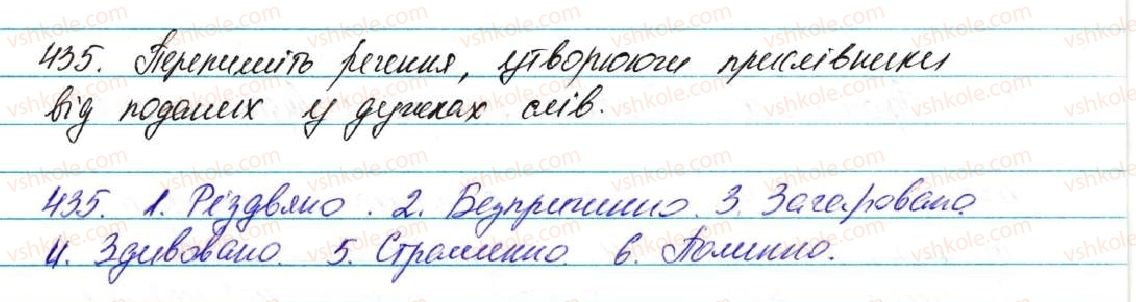 435. Перепишіть речення, утворюючи прислівники
від поданих у дужках слів.
435. 1. Різдвяно. 2. Безпричинно. 3. Зачаровано.
4. Здивовано. 5. Страшенно. 6. Полинно.